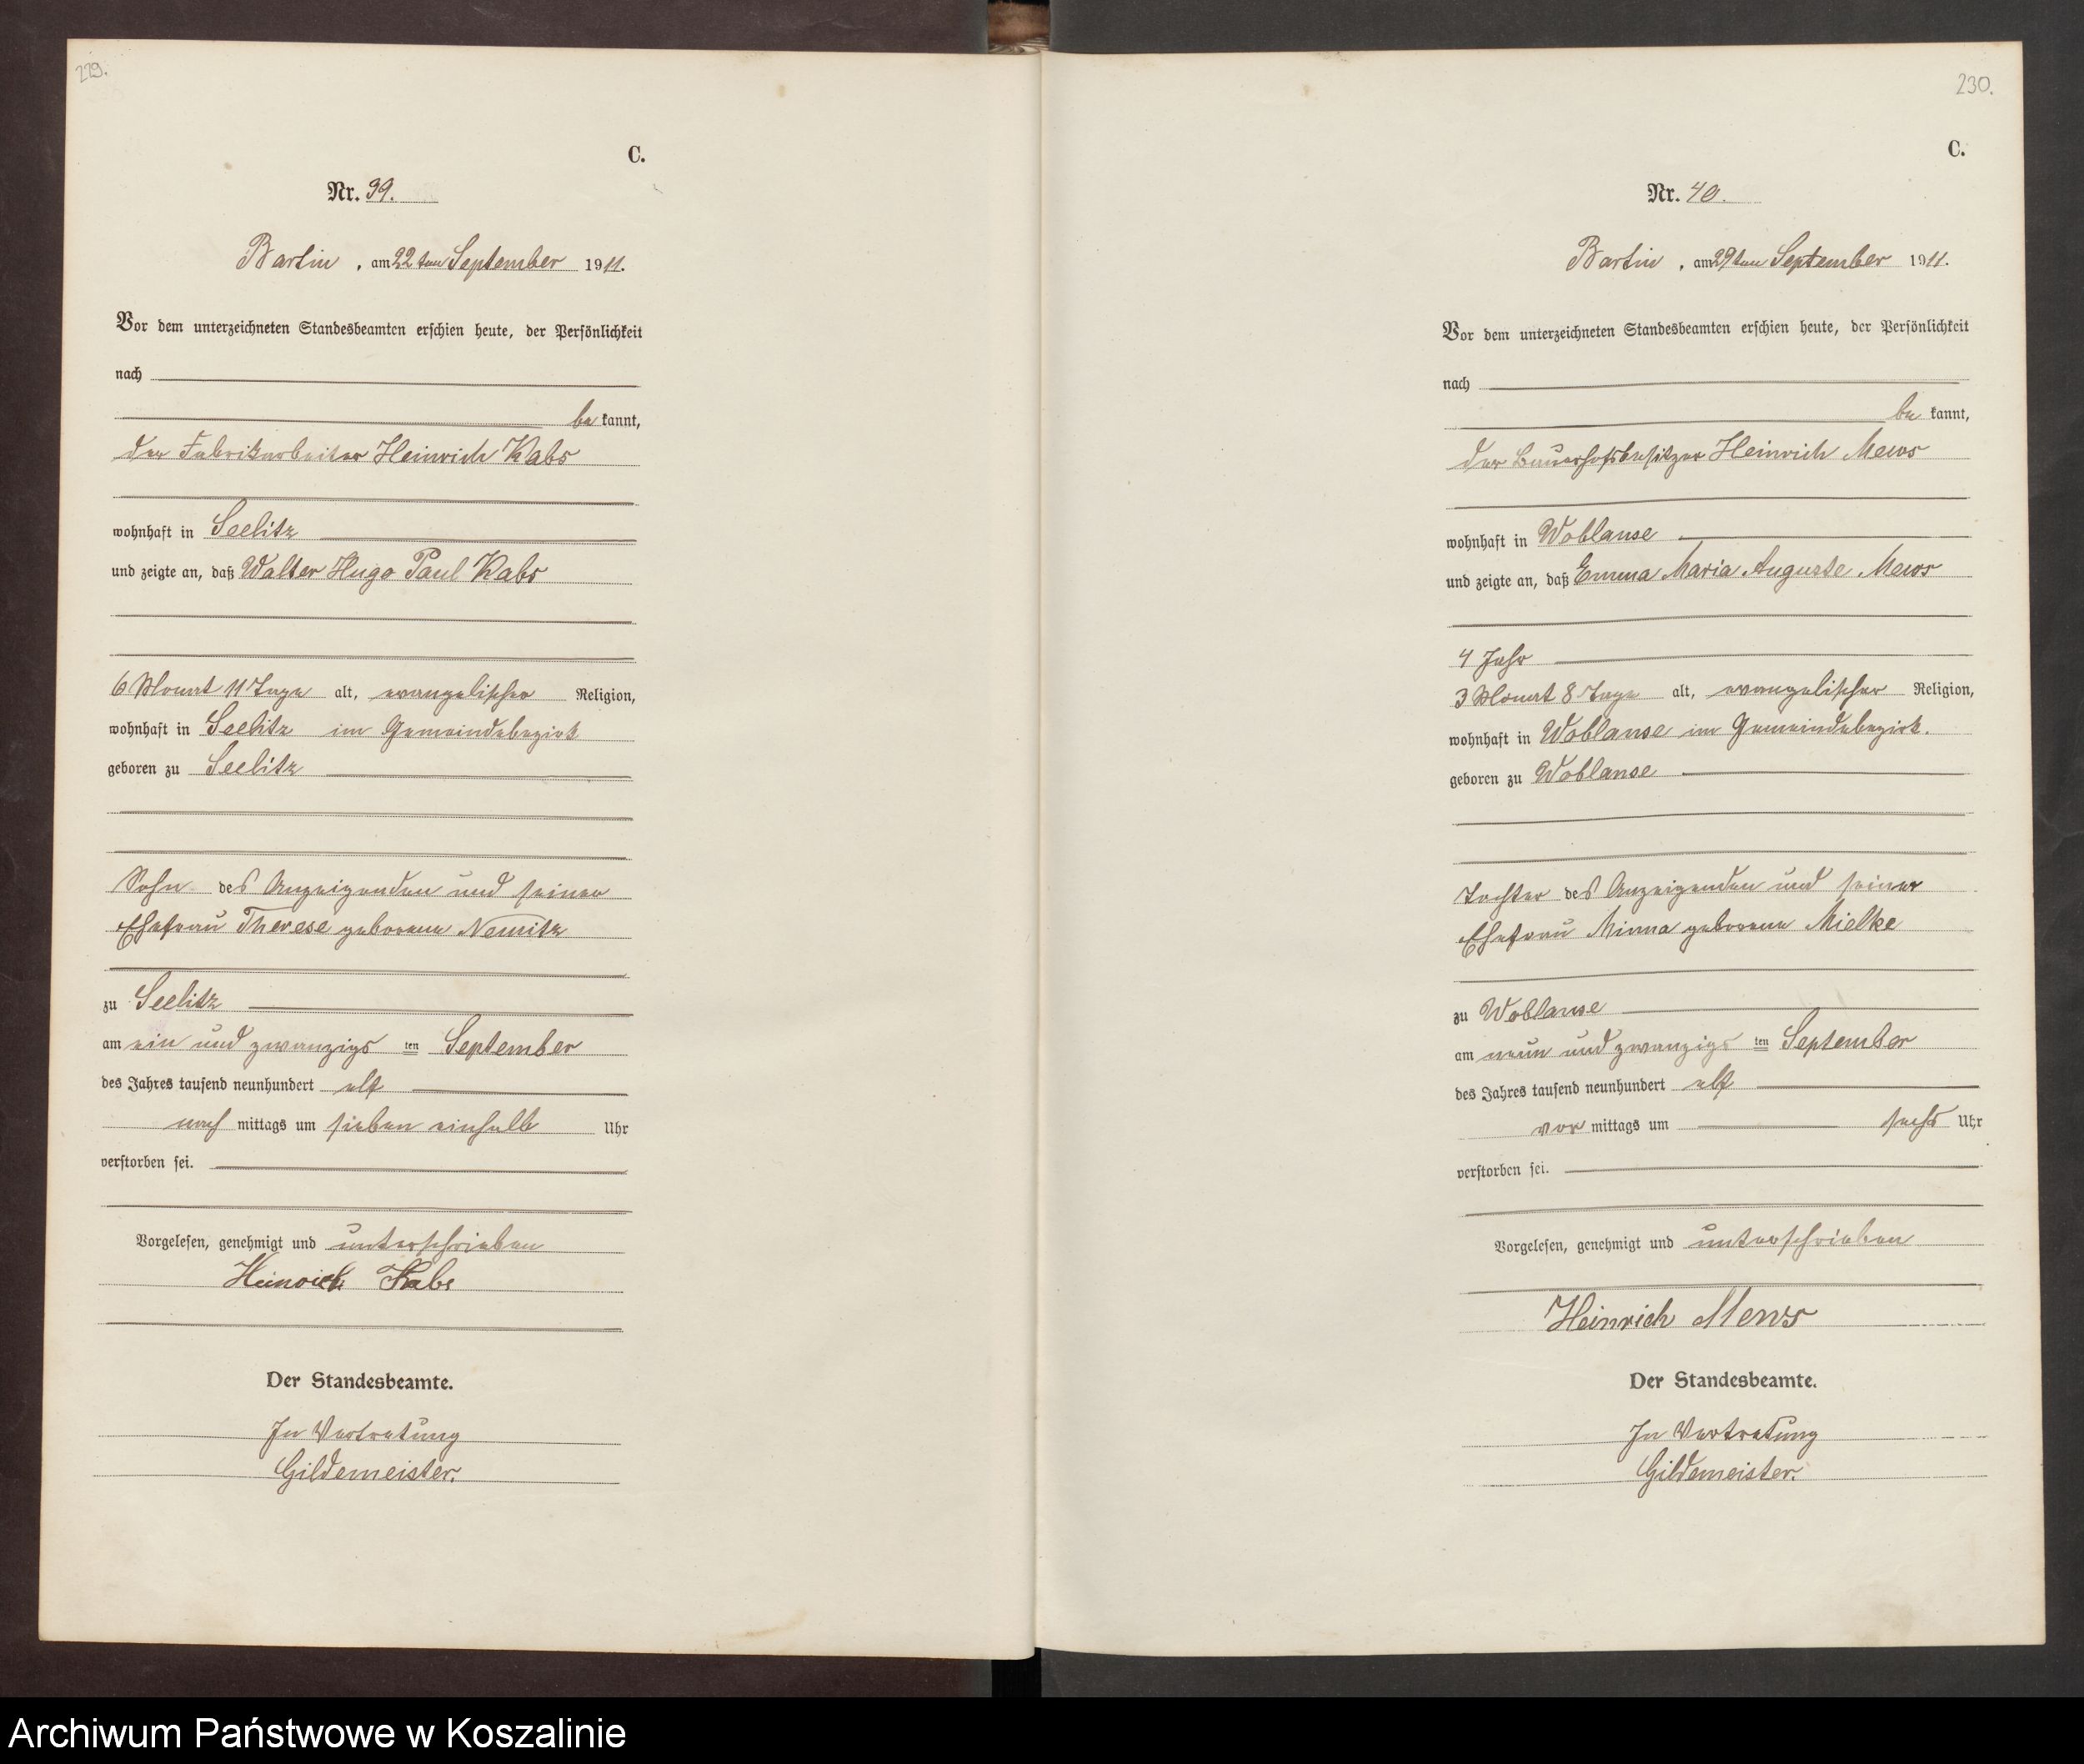 229.
C.
Nr. 39.
Bartin, am 22ten September 1911.
Vor dem unterzeichneten Standesbeamten erschien heute, der Persönlichkeit
nach
be kannt,
der Fabrikarbeiter Heinrich Kabs
wohnhaft in Seelitz
und zeigte an, daß Walter Hugo Paul Kabs
6 Monat 11 Tage alt, evangelischer Religion,
wohnhaft in Seelitz im Gemeindebezirk
geboren zu Seelitz
Sohn des Anzeigenden und seiner
Ehefrau Therese geborene Nemitz
zu Seelitz
am ein und zwanzigs ten September
des Jahres tausend neunhundert elf
nach mittags um sieben einhalb Uhr
verstorben sei.
Vorgelesen, genehmigt und unterschrieben
Heinrich Kabs
Der Standesbeamte.
In Vertretung
Gildemeister.
230.
C.
Nr. 40.
Bartin, am 29ten September 1911.
Vor dem unterzeichneten Standesbeamten erschien heute, der Persönlichkeit
nach
be kannt,
der Bauerhofsbesitzer Heinrich Mews
wohnhaft in Woblanse
und zeigte an, daß Emma Maria Auguste Mews
4 Jahr
3 Monat 8 Tage alt, evangelischer Religion,
wohnhaft in Woblanse im Gemeindebezirk.
geboren zu Woblanse
Tochter des Anzeigenden und seiner
Ehefrau Minna geborene Mielke
zu Woblanse
am neun und zwanzigs ten September
des Jahres tausend neunhundert elf
vor mittags um sechs Uhr
verstorben sei.
Vorgelesen, genehmigt und unterschrieben
Heinrich Mews
Der Standesbeamte.
In Vertretung
Gildemeister.
Archiwum Państwowe w Koszalinie